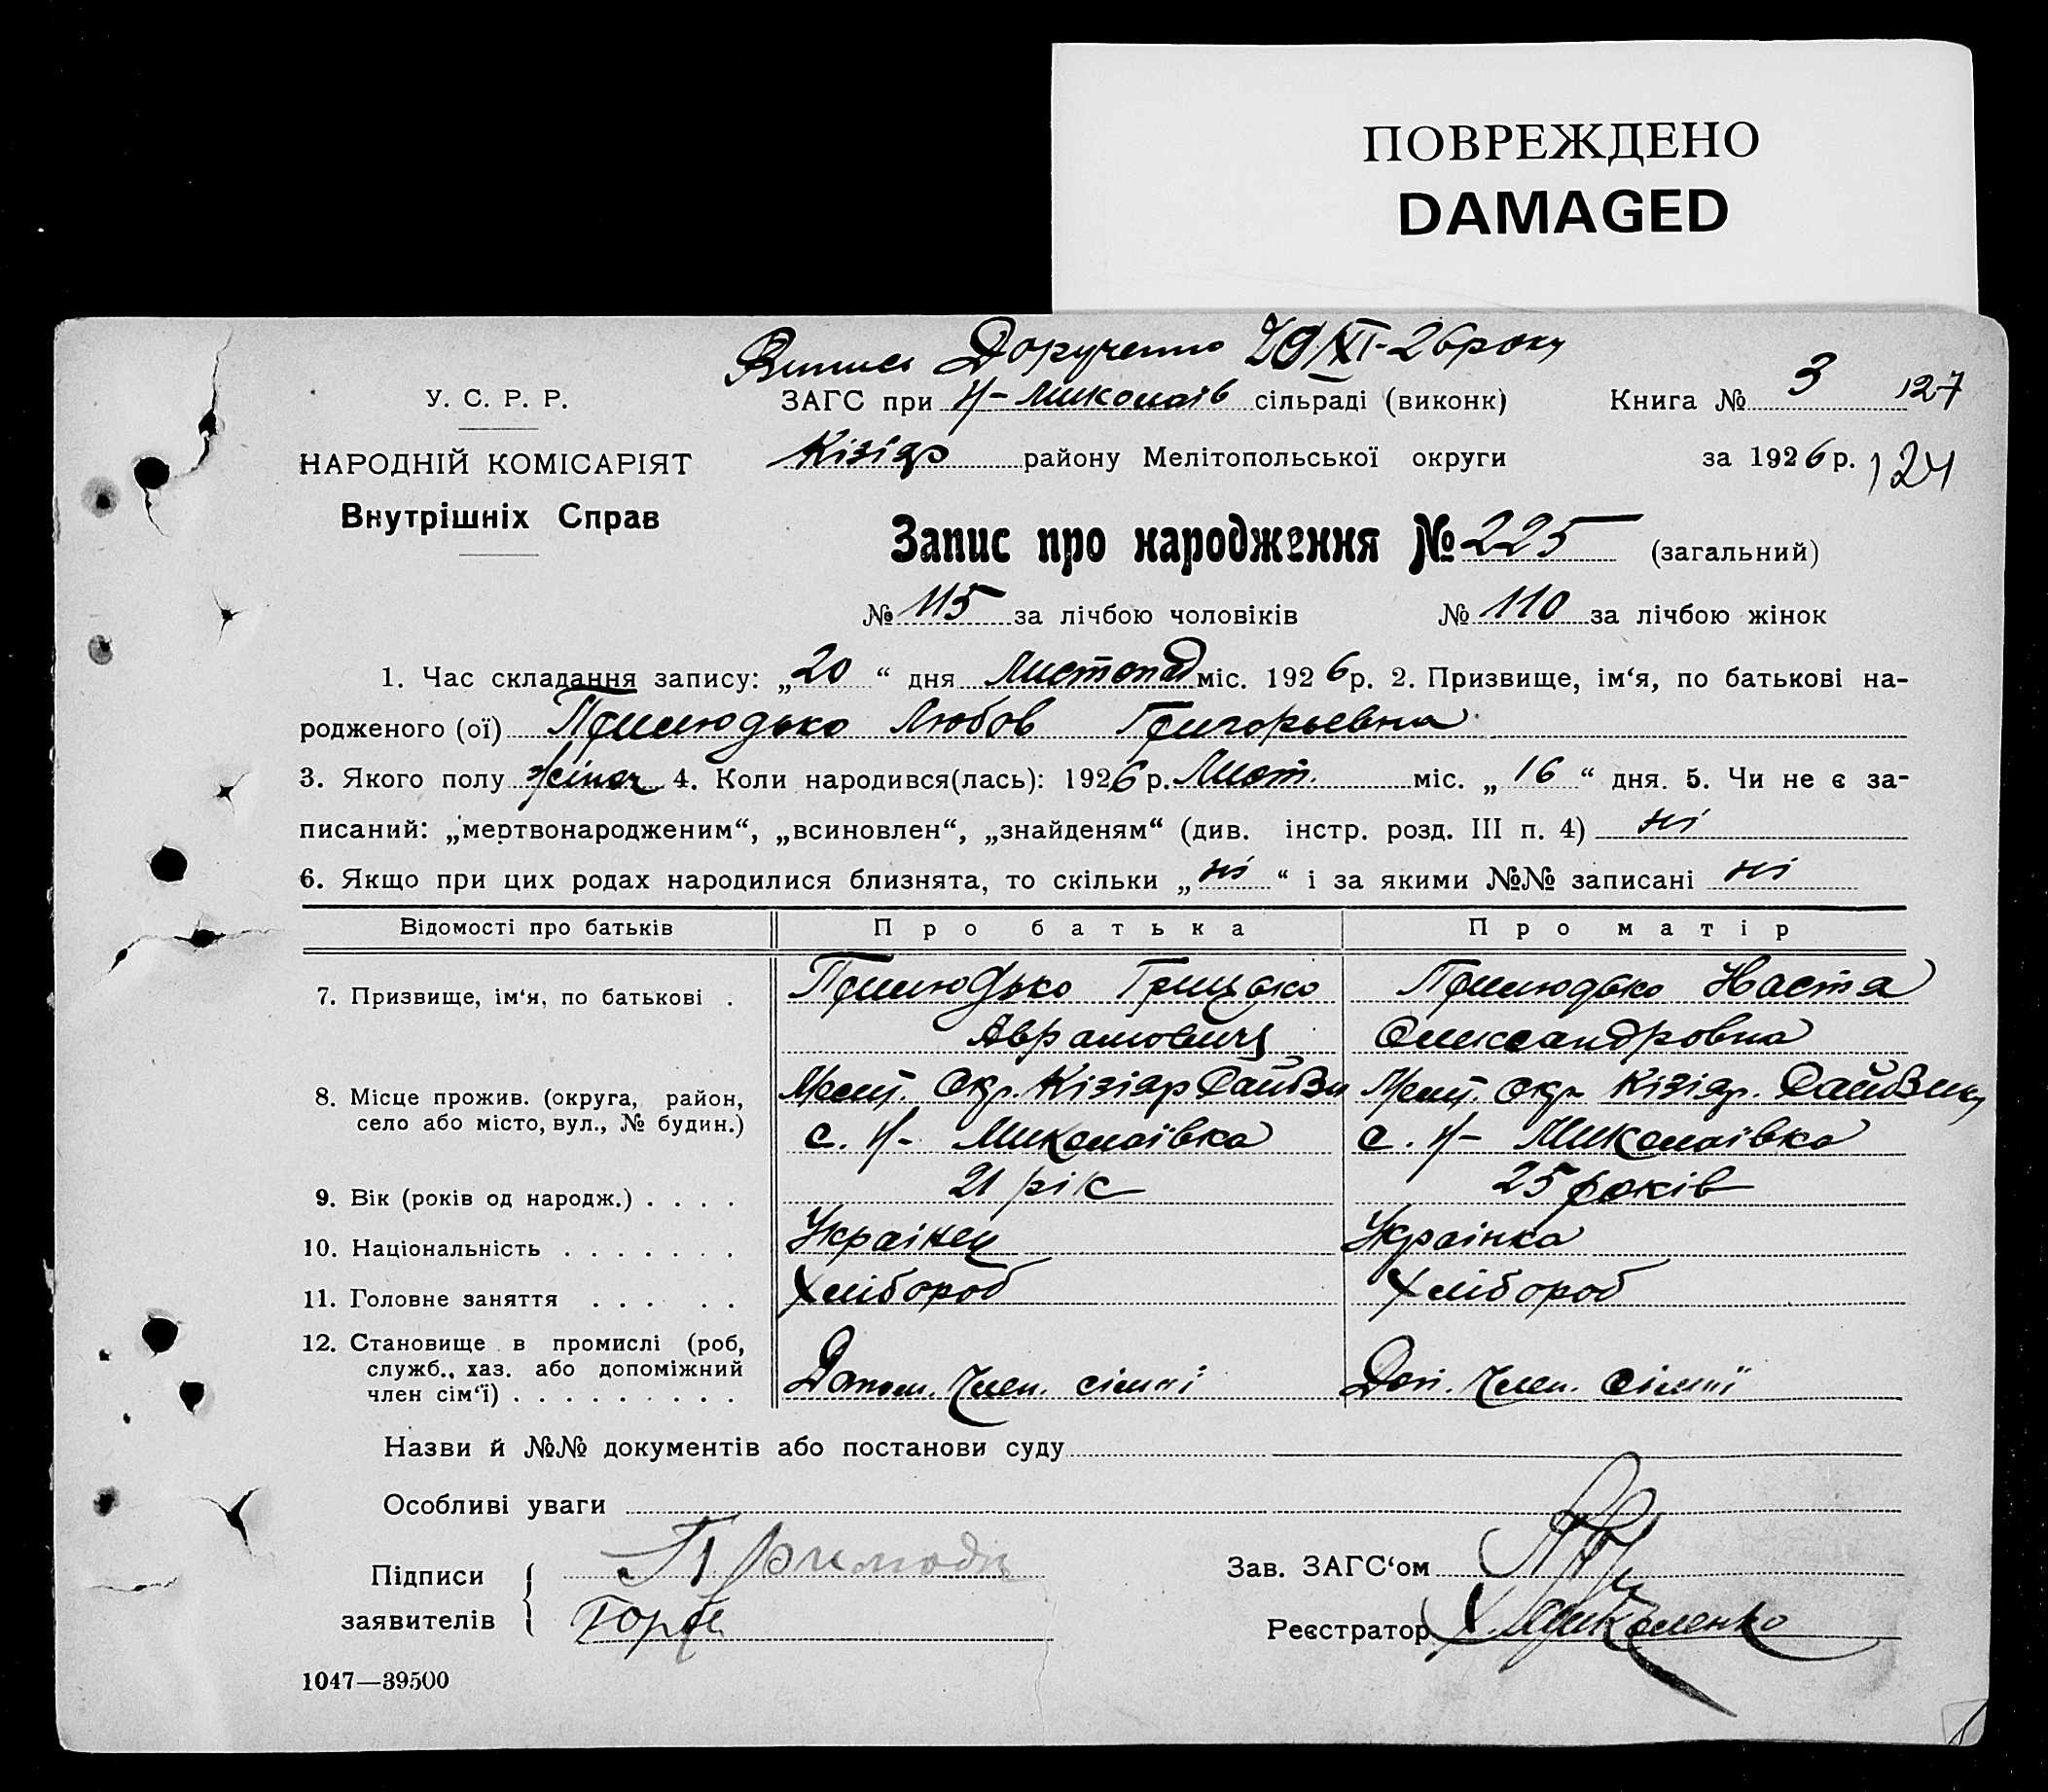 ПОВРЕЖДЕНО
DAMAGED
Випис Доручено 29/XI-26 року
У. С. Р. Р.
ЗАГС при Н-Миколаїв сільраді (виконк) Книга № 3 127
НАРОДНІЙ КОМІСАРІЯТ
Кізіяр району Мелітопольської округи за 1926 р. 124
Внутрішніх Справ
Запис про народження № 225 (загальний)
№ 115 за лічбою чоловіків № 110 за лічбою жінок
1. Час складання запису: „20“ дня Листопад міс. 1926 р. 2. Призвище, ім‘я, по батькові на-
родженого (ої) Прилюдько Любов Григорьевна
3. Якого полу жіноч 4. Коли народився(лась): 1926 р. Лист. міс. „16“ дня. 5. Чи не є за-
писаний: „мертвонародженим“, „всиновлен“, „знайденям“ (див. інстр. розд. III п. 4) ні
6. Якщо при цих родах народилися близнята, то скільки „ні“ і за якими №№ записані ні
Відомості про батьків Про батька Про матір
7. Призвище, ім‘я, по батькові . Прилюдько Грицько Прилюдько Настя
Аврамович Олександровна
8. Місце прожив. (округа, район, Меліт. Окр. Кізіяр Меліт. Окр. Кізіяр.
село або місто, вул., № будин.) с. Н- Миколаївка с. Н- Миколаївка
9. Вік (років од народж.) . . . . 21 рік 25 років
10. Національність . . . . . . . Украінец Украінка
11. Головне заняття . . . . . Хлібороб Хлібороб
12. Становище в промислі (роб,
служб., хаз. або допоміжний
член сім‘ї) . . . . . . . . . Допом. член. сімні Доп. член. сімнї
Назви й №№ документів або постанови суду
Особливі уваги
Підписи
заявителів
Зав. ЗАГС‘ом
Реєстратор
1047—39500